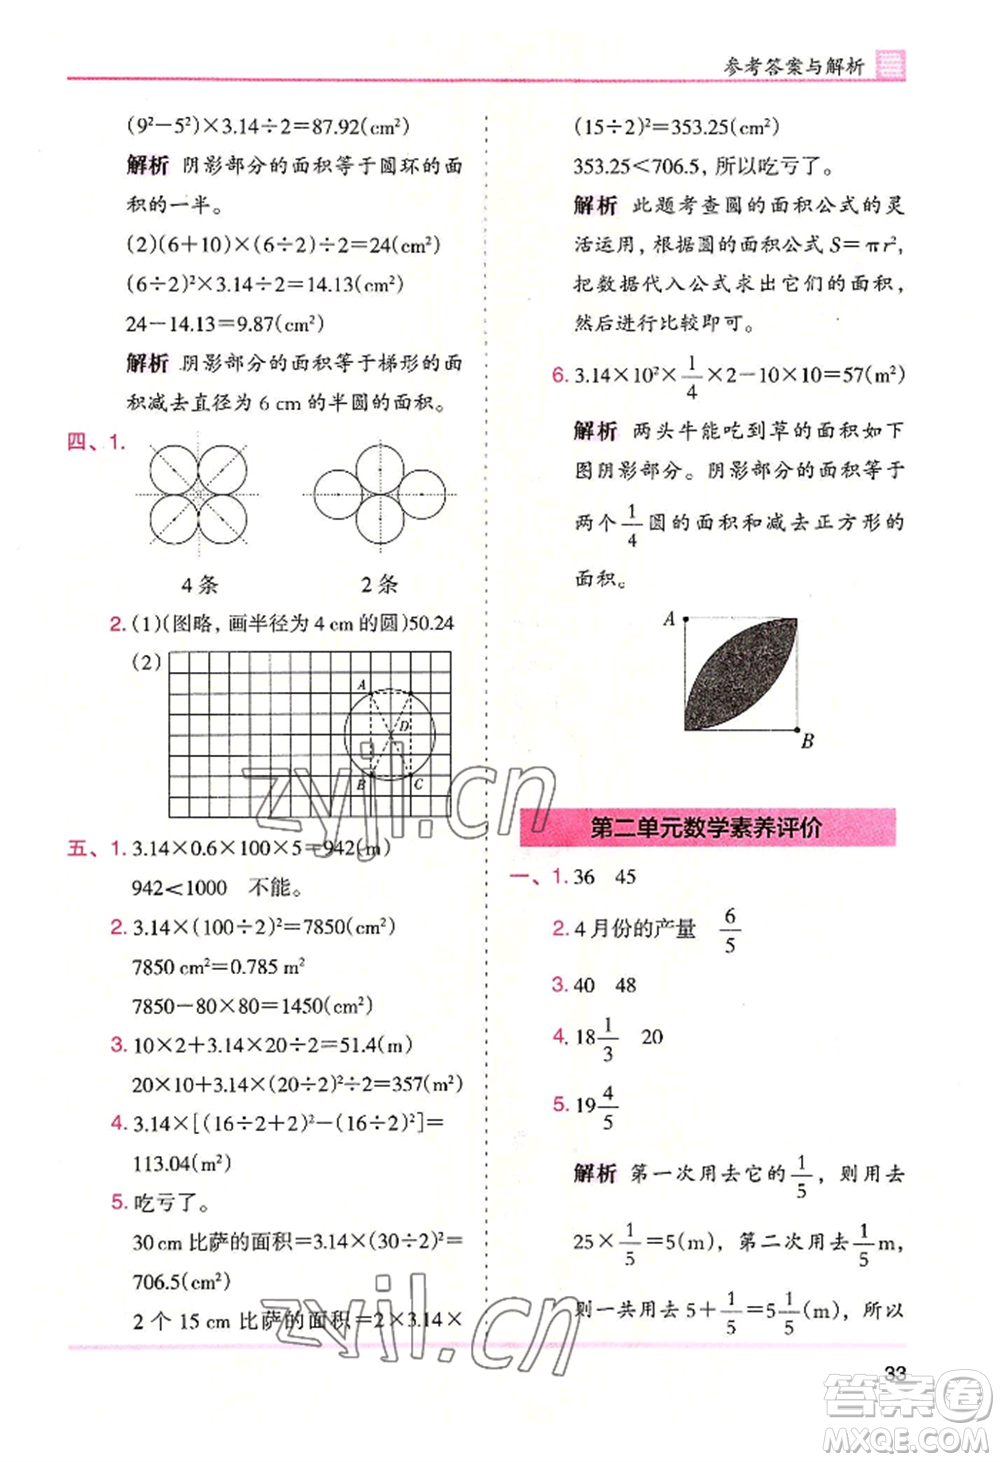 参考答案与解析
(9²−5²)×3.14÷2=87.92(cm²)
解析 阴影部分的面积等于圆环的面
积的一半。
(2)(6+10)×(6÷2)÷2=24(cm²)
(6÷2)²×3.14÷2=14.13(cm²)
24−14.13=9.87(cm²)
解析 阴影部分的面积等于梯形的面
积减去直径为 6 cm 的半圆的面积。
四、1.
4 条 2 条
2. (1)(图略，画半径为 4 cm 的圆)50.24
(2)
A
D
B C
五、1. 3.14×0.6×100×5=942(m)
942<1000 不能。
2. 3.14×(100÷2)²=7850(cm²)
7850 cm²=0.785 m²
7850−80×80=1450(cm²)
3. 10×2+3.14×20÷2=51.4(m)
20×10+3.14×(20÷2)²÷2=357(m²)
4. 3.14×[(16÷2+2)²−(16÷2)²]=
113.04(m²)
5. 吃亏了。
30 cm 比萨的面积=3.14×(30÷2)²=
706.5(cm²)
2 个 15 cm 比萨的面积=2×3.14×
(15÷2)²=353.25(cm²)
353.25<706.5，所以吃亏了。
解析 此题考查圆的面积公式的灵
活运用，根据圆的面积公式 S=πr²，
把数据代入公式求出它们的面积，
然后进行比较即可。
6. 3.14×10²×1/4×2−10×10=57(m²)
解析 两头牛能吃到草的面积如下
图阴影部分。阴影部分的面积等于
两个1/4圆的面积和减去正方形的
面积。
A
B
第二单元数学素养评价
一、1. 36 45
2. 4 月份的产量 6/5
3. 40 48
4. 18 1/3 20
5. 19 4/5
解析 第一次用去它的1/5，则用去
25×1/5=5(m)，第二次用去1/5 m，
则一共用去 5+1/5=5 1/5(m)，所以
33
zyjl.cn
zyjl.cn
答案圈
MXQE.COM